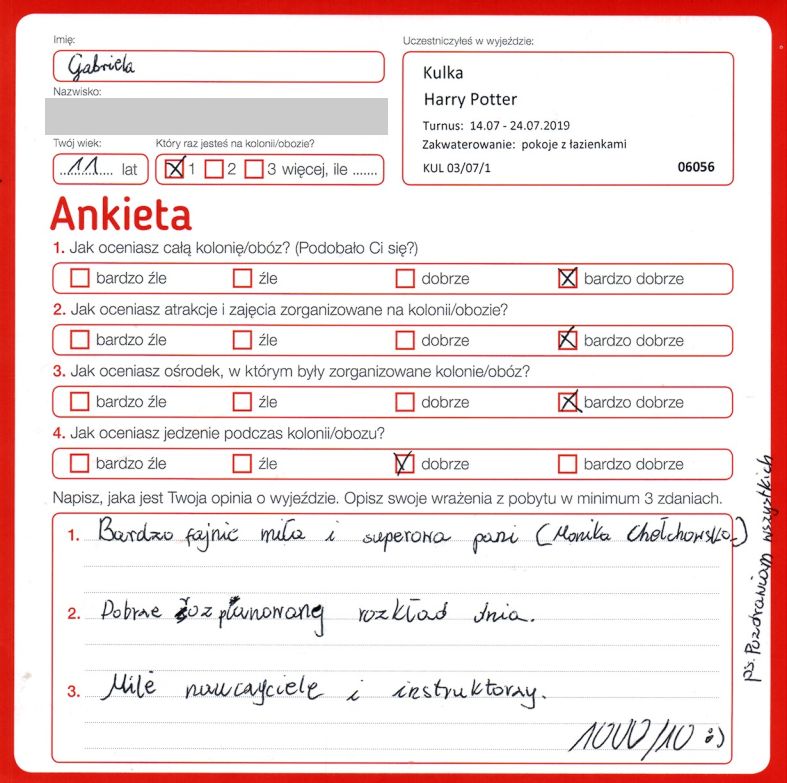 Imię:
Gabriela
Nazwisko:
Twój wiek:
11 lat
Który raz jesteś na kolonii/obozie?
1 2 3 więcej, ile .......
Uczestniczyłeś w wyjeździe:
Kulka
Harry Potter
Turnus: 14.07 - 24.07.2019
Zakwaterowanie: pokoje z łazienkami
KUL 03/07/1 06056
Ankieta
1. Jak oceniasz całą kolonię/obóz? (Podobało Ci się?)
bardzo źle źle dobrze bardzo dobrze
2. Jak oceniasz atrakcje i zajęcia zorganizowane na kolonii/obozie?
bardzo źle źle dobrze bardzo dobrze
3. Jak oceniasz ośrodek, w którym były zorganizowane kolonie/obóz?
bardzo źle źle dobrze bardzo dobrze
4. Jak oceniasz jedzenie podczas kolonii/obozu?
bardzo źle źle dobrze bardzo dobrze
Napisz, jaka jest Twoja opinia o wyjeździe. Opisz swoje wrażenia z pobytu w minimum 3 zdaniach.
1. Bardzo fajnie miła i superowa pani (Monika Chełchowska)
2. Dobrze rozplanowany rozkład dnia.
3. Mile nauczyciele i instruktorzy.
1000/10 :)
ps. Pozdrawiam wszystkich